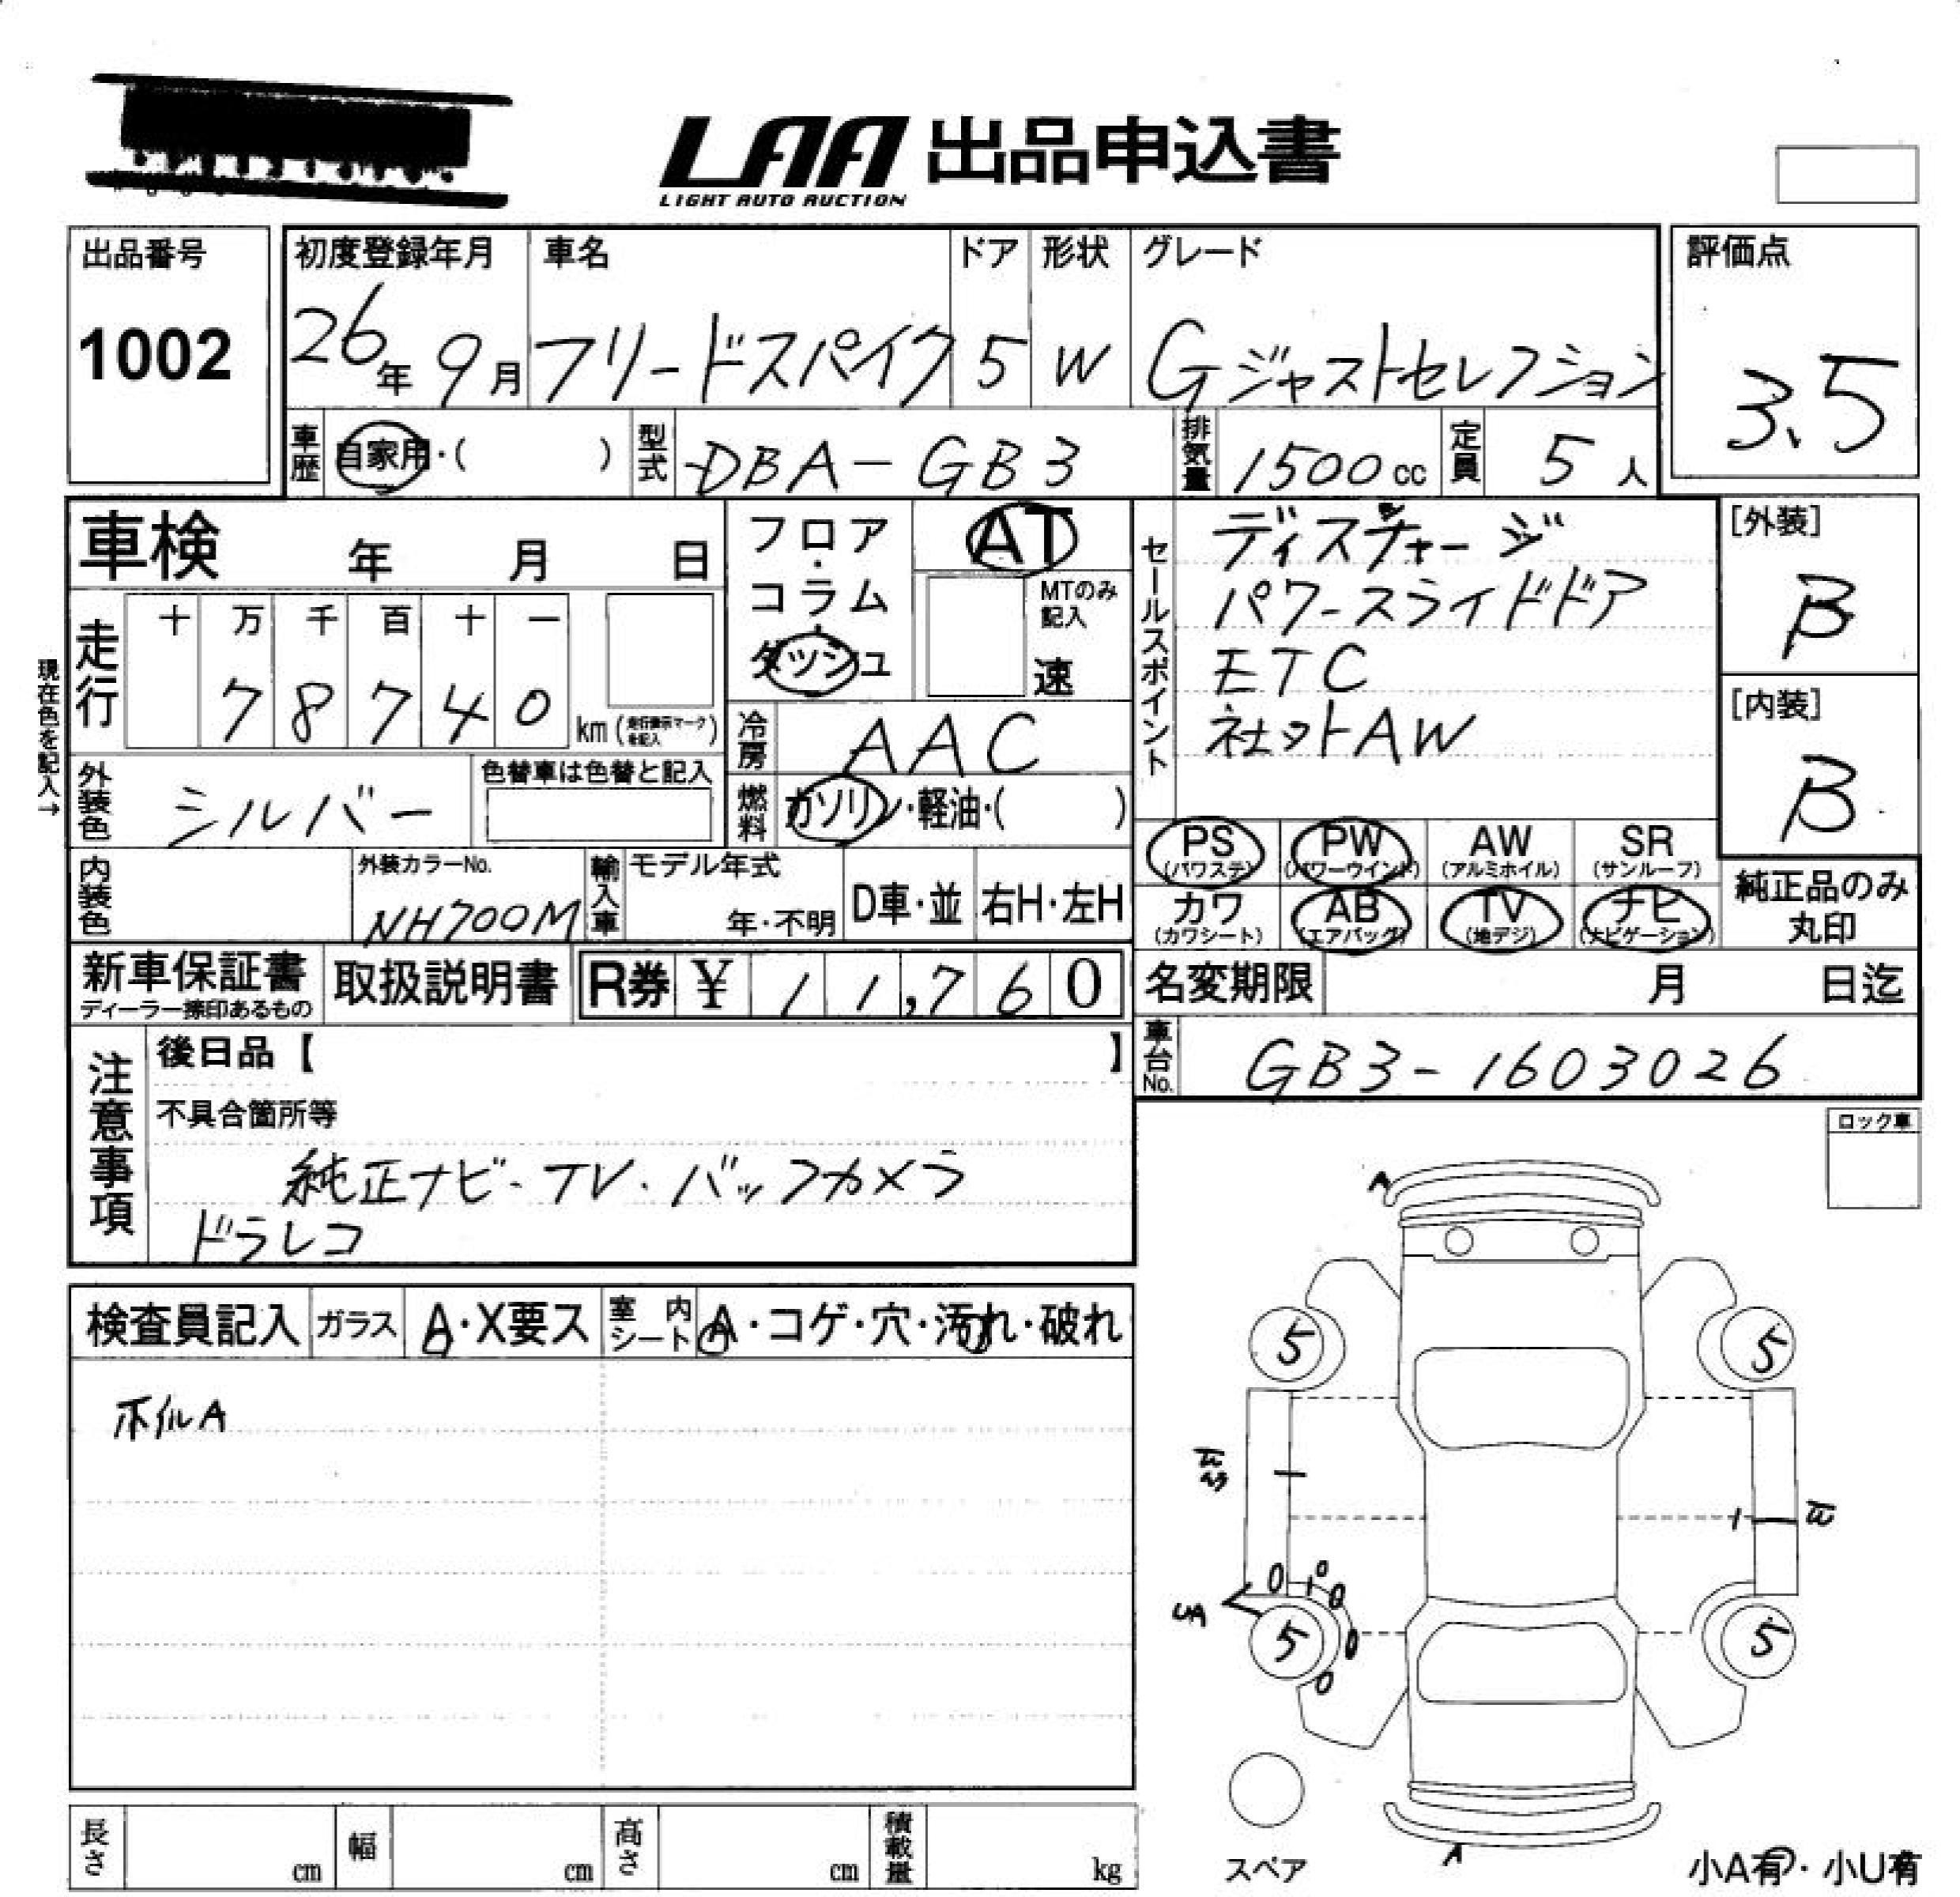 LAA 出品申込書
LIGHT AUTO AUCTION
出品番号 1002
初度登録年月 26年 9月
車名 フリードスパイク
ドア 5
形状 W
グレード Gジャストセレクション
評価点 3.5
車歴 自家用・( )
型式 DBA-GB3
排気量 1500cc
定員 5人
車検 年 月 日
フロア・コラム・ダッシュ
AT
MTのみ記入
速
セールスポイント
ディスチャージ
パワースライドドア
ETC
社外AW
[外装] B
[内装] B
現在色を記入→
走行 十 万 千 百 十 一
78740 km (走行表示マークを記入)
冷房 AAC
外装色 シルバー
色替車は色替と記入
燃料 ガソリン・軽油・( )
PS (パワステ) PW (パワーウインド) AW (アルミホイル) SR (サンルーフ)
カワ (カワシート) AB (エアバッグ) TV (地デジ) ナビ (ナビゲーション)
純正品のみ丸印
内装色
外装カラーNo. NH700M
輸入車 モデル年式 年・不明 D車・並 右H・左H
新車保証書 ディーラー捺印あるもの
取扱説明書
R券 ¥ 11,760
名変期限 月 日迄
車台No. GB3-1603026
注意事項
後日品【 】
不具合箇所等
純正ナビ・TV・バックカメラ
ドラレコ
ロック車
検査員記入 ガラス A・X要ス 室内シート A・コゲ・穴・汚れ・破れ
ホイルA
A
5 5
UA
5 5
スペア
A
小A有・小U有
長さ cm 幅 cm 高さ cm 積載量 kg